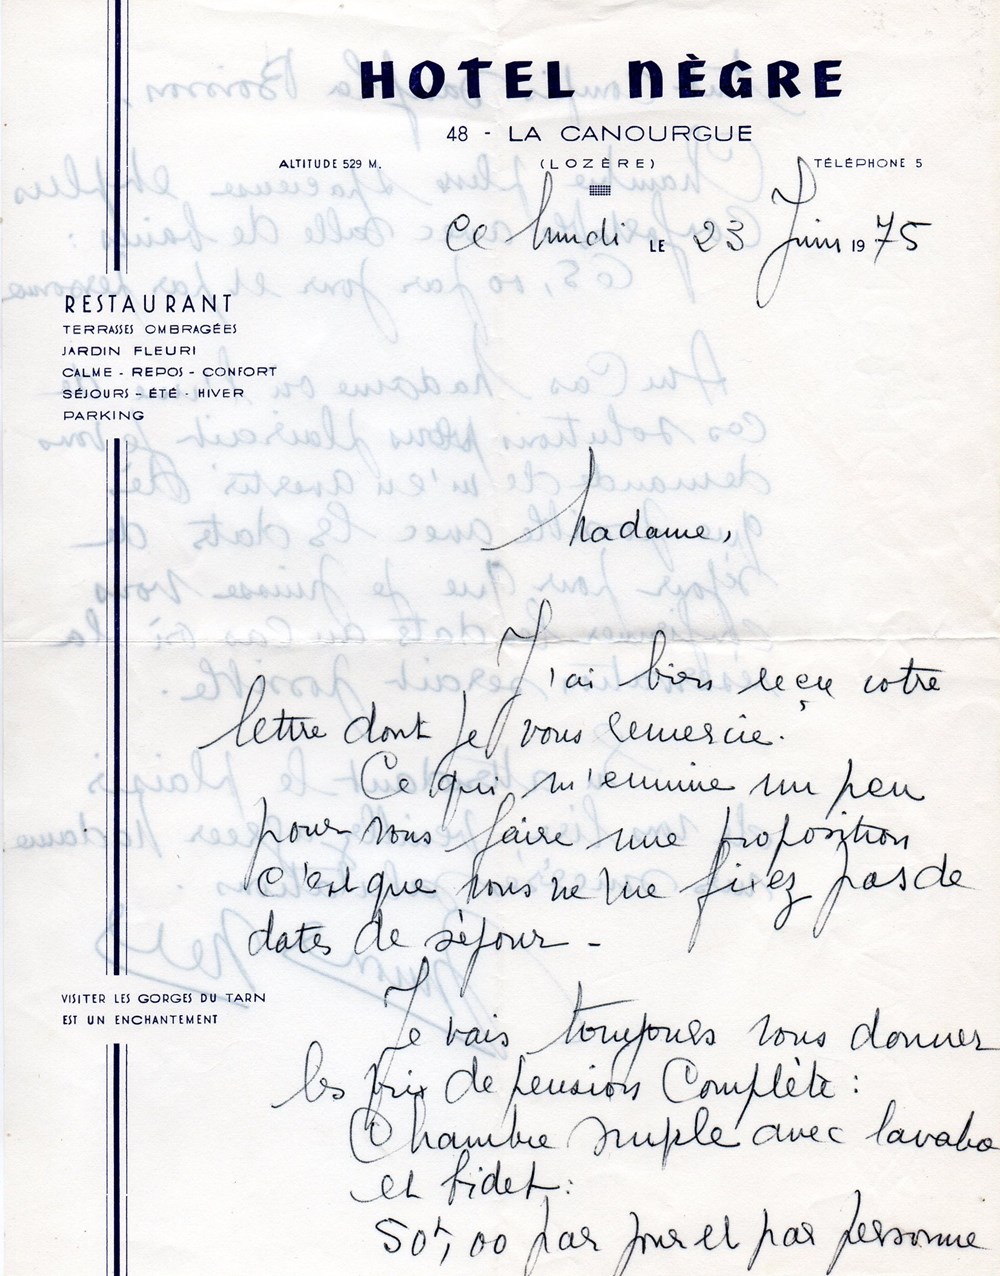 HOTEL NÈGRE
48 - LA CANOURGUE
ALTITUDE 529 M. (LOZÈRE) TÉLÉPHONE 5
Ce lundi LE 23 Juin 1975
RESTAURANT
TERRASSES OMBRAGÉES
JARDIN FLEURI
CALME - REPOS - CONFORT
SÉJOURS - ÉTÉ - HIVER
PARKING
Madame,
J'ai bien reçu votre
lettre dont je vous remercie.
Ce qui m'ennuie un peu
pour vous faire une proposition
c'est que vous ne me fixez pas de
dates de séjour -
VISITER LES GORGES DU TARN
EST UN ENCHANTEMENT
Je vais toujours vous donner
les prix de pension Complète :
Chambre simple avec lavabo
et bidet :
50F,00 par jour et par personne